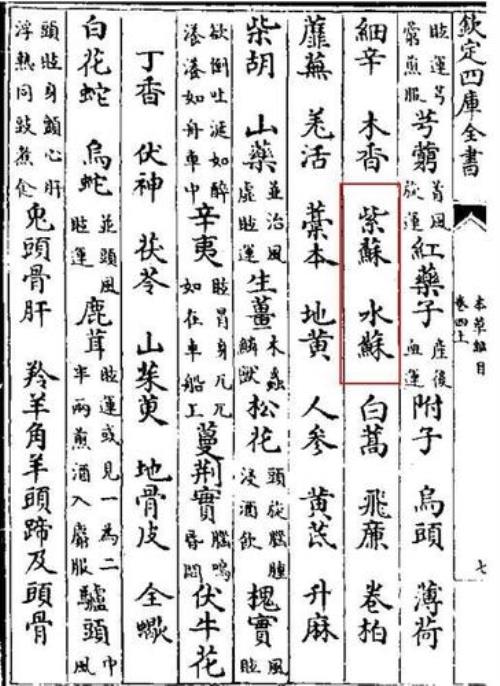 欽定四庫全書
本草綱目
卷四上
七
眩運芎藭煎服 芎藭 首風旋運 紅藥子 產後血運 附子 烏頭 薄荷
細辛 木香 紫蘇 水蘇 白蒿 飛廉 卷柏
蘼蕪 羌活 藁本 地黃 人參 黃芪 升麻
柴胡 山藥 並治風虛眩運 生薑 木蟲鱗獸 松花 頭旋腦腫浸酒飲 槐實 風眩
欲倒吐涎如醉瀁瀁如舟車中 辛夷 眩冒身兀兀如在車船上 蔓荊實 腦鳴昏悶 伏牛花
丁香 伏神 茯苓 山茱萸 地骨皮 全蠍
白花蛇 烏蛇 並頭風眩運 鹿茸 眩運或見一為二半兩煎酒入麝服 驢頭 中風
頭眩身顫心肝浮熱同豉煮食 兔頭骨肝 羚羊角羊頭蹄及頭骨